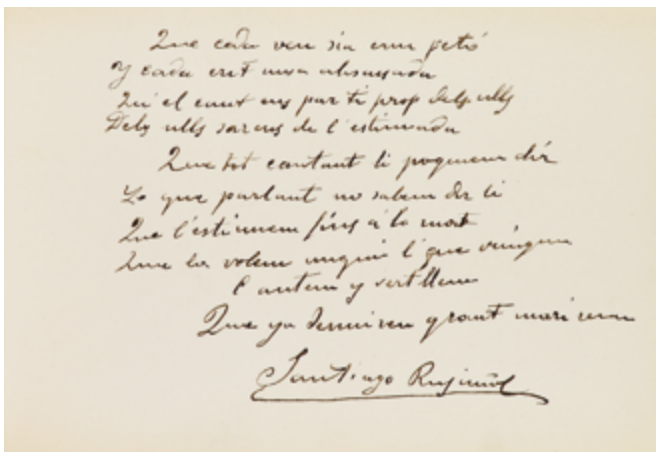 Que cada veu sia un petó
Y cada crit una abrasada
Qu'el cant ens porti prop dels ulls
Dels ulls serens de l'estimada
Que tot cantant li poguem dir
Lo que parlant no sabem dir li
Que l'estimem fins á la mort
Que la volem l que vingui
Cantem y
Que ya y
Santiago Rusiñol